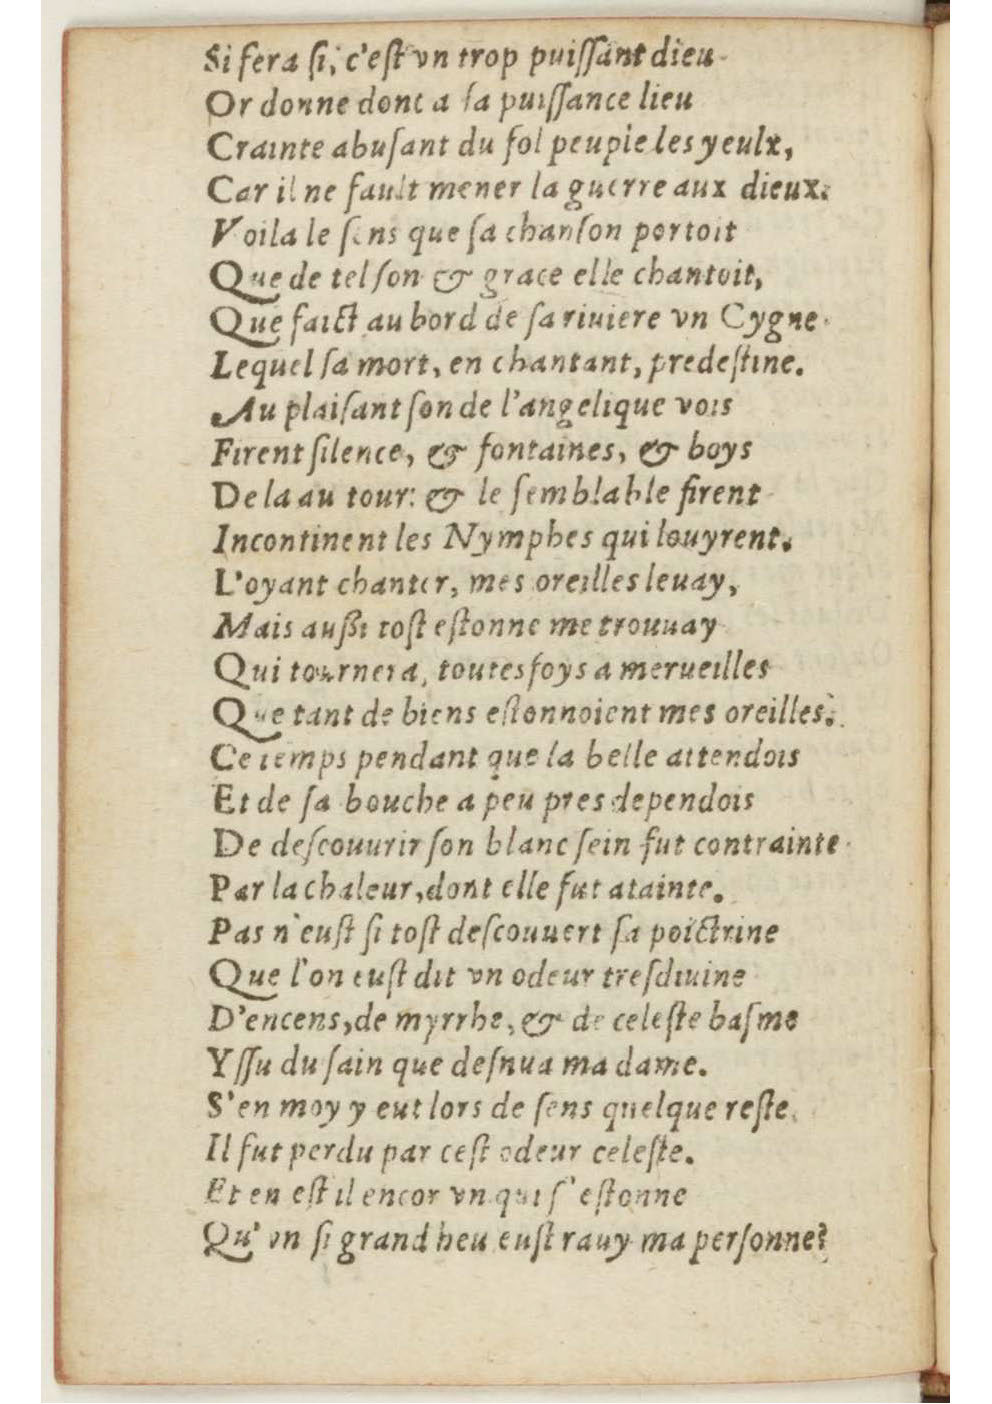 Si fera ſi, c'eſt vn trop puiſſant dieu
Or donne donc a ſa puiſſance lieu
Crainte abuſant du fol peuple les yeulx,
Car il ne fault mener la guerre aux dieux.
Voila le ſens que ſa chanſon portoit
Que de tel ſon & grace elle chantoit,
Que faict au bord de ſa riuiere vn Cygne
Lequel ſa mort, en chantant, predeſtine.
Au plaiſant ſon de l'angelique vois
Firent ſilence, & fontaines, & boys
De la au tour: & le ſemblable firent
Incontinent les Nymphes qui l'ouyrent.
L'oyant chanter, mes oreilles leuay,
Mais auſſi toſt eſtonne me trouuay
Qui tournera, toutesfoys a merueilles
Que tant de biens eſtonnoient mes oreilles.
Ce temps pendant que la belle attendois
Et de ſa bouche a peu pres dependois
De deſcouurir ſon blanc ſein fut contrainte
Par la chaleur, dont elle fut atainte.
Pas n'euſt ſi toſt deſcouuert ſa poictrine
Que l'on euſt dit vn odeur treſdiuine
D'encens, de myrrhe, & de celeſte baſme
Yſſu du ſain que deſnua ma dame.
S'en moy y eut lors de ſens quelque reſte
Il fut perdu par ceſt odeur celeſte.
Et en eſt il encor vn qui s'eſtonne
Qu'vn ſi grand heu euſt rauy ma perſonne?